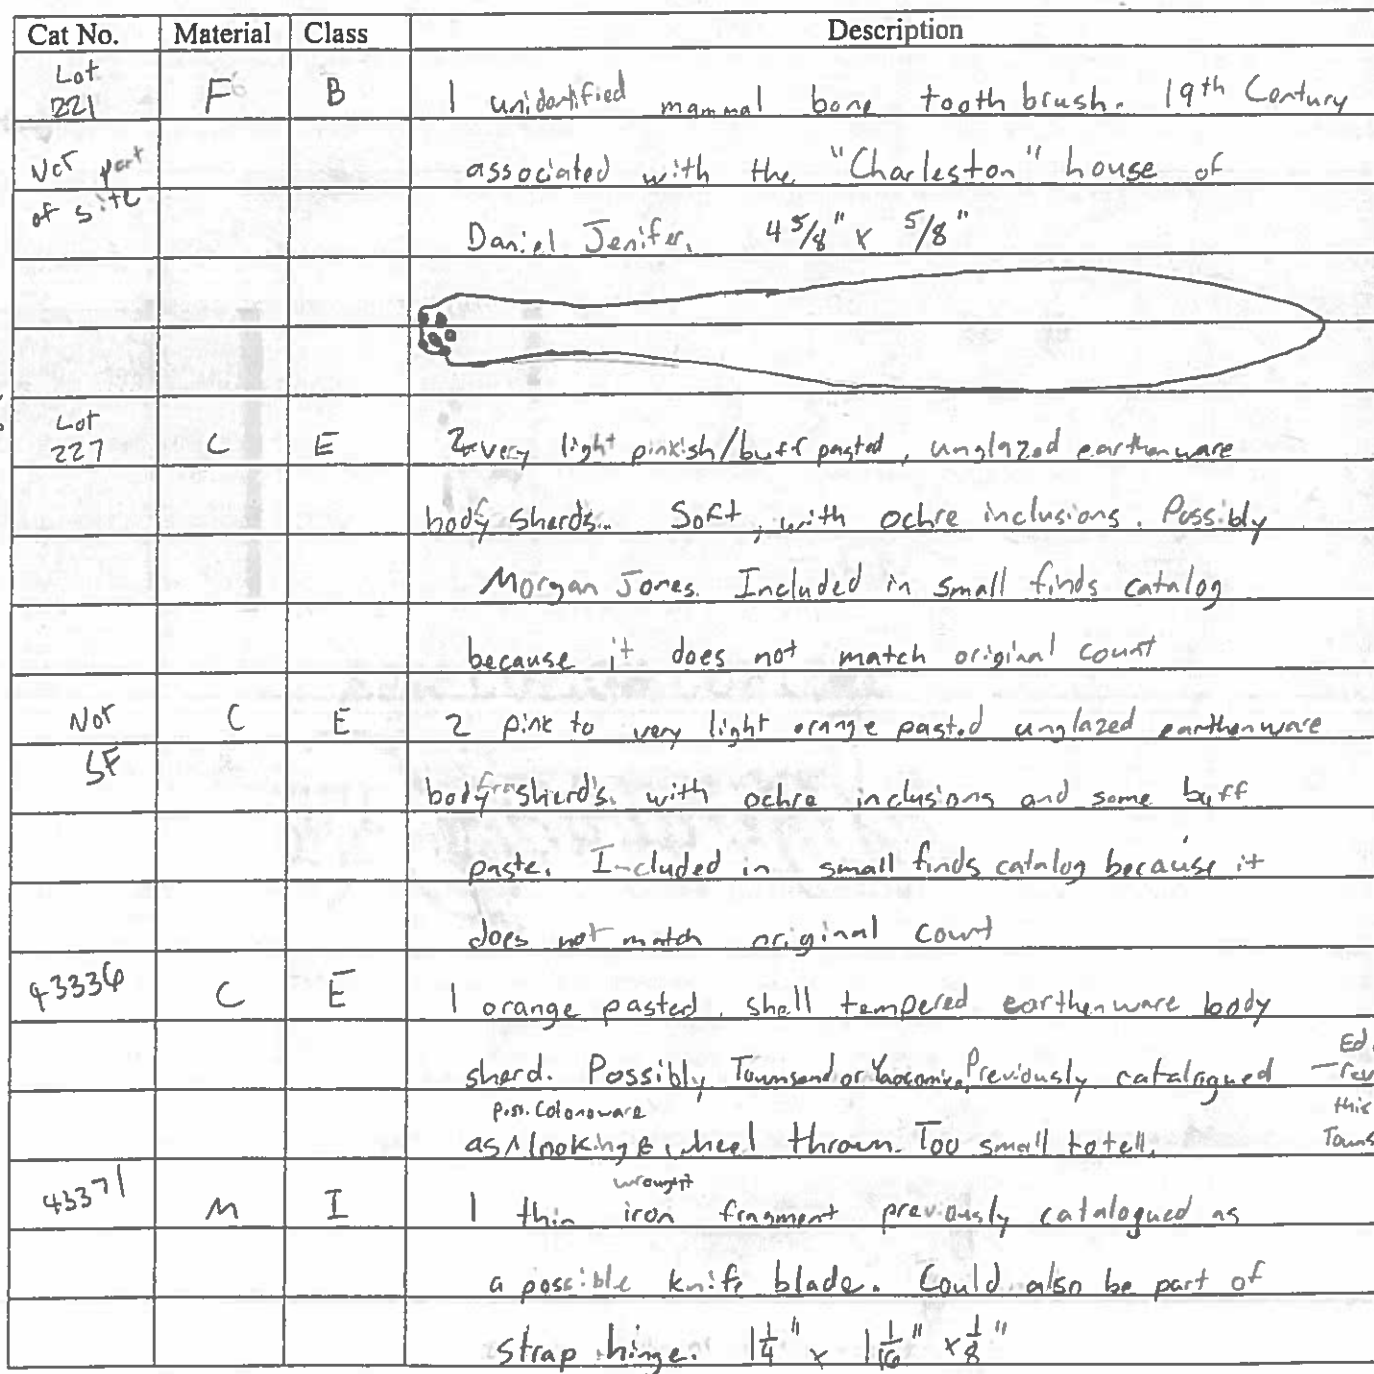 Cat No. Material Class Description
Lot
221 F B 1 unidentified mammal bone toothbrush. 19th Century
Not part associated with the "Charleston" house of
of site
Daniel Jenifer. 4 5/8" x 5/8"
Lot
227 C E 2 very light pinkish/buff pasted, unglazed earthenware
body sherds. Soft, with ochre inclusions. Possibly
Morgan Jones. Included in small finds catalog
because it does not match original count
Not C E 2 pink to very light orange pasted unglazed earthenware
SF
body sherds. with ochre inclusions and some buff
paste. Included in small finds catalog because it
does not match original count
43336 C E 1 orange pasted, shell tempered earthenware body
Ed
sherd. Possibly Townsend or Yaocomico. Previously catalogued
this
poss. Colonoware
as looking wheel thrown. Too small to tell.
Towns
wrought
43371 M I 1 thin iron fragment previously catalogued as
a possible knife blade. Could also be part of
strap hinge. 1 1/4" x 1 1/16" x 1/8"